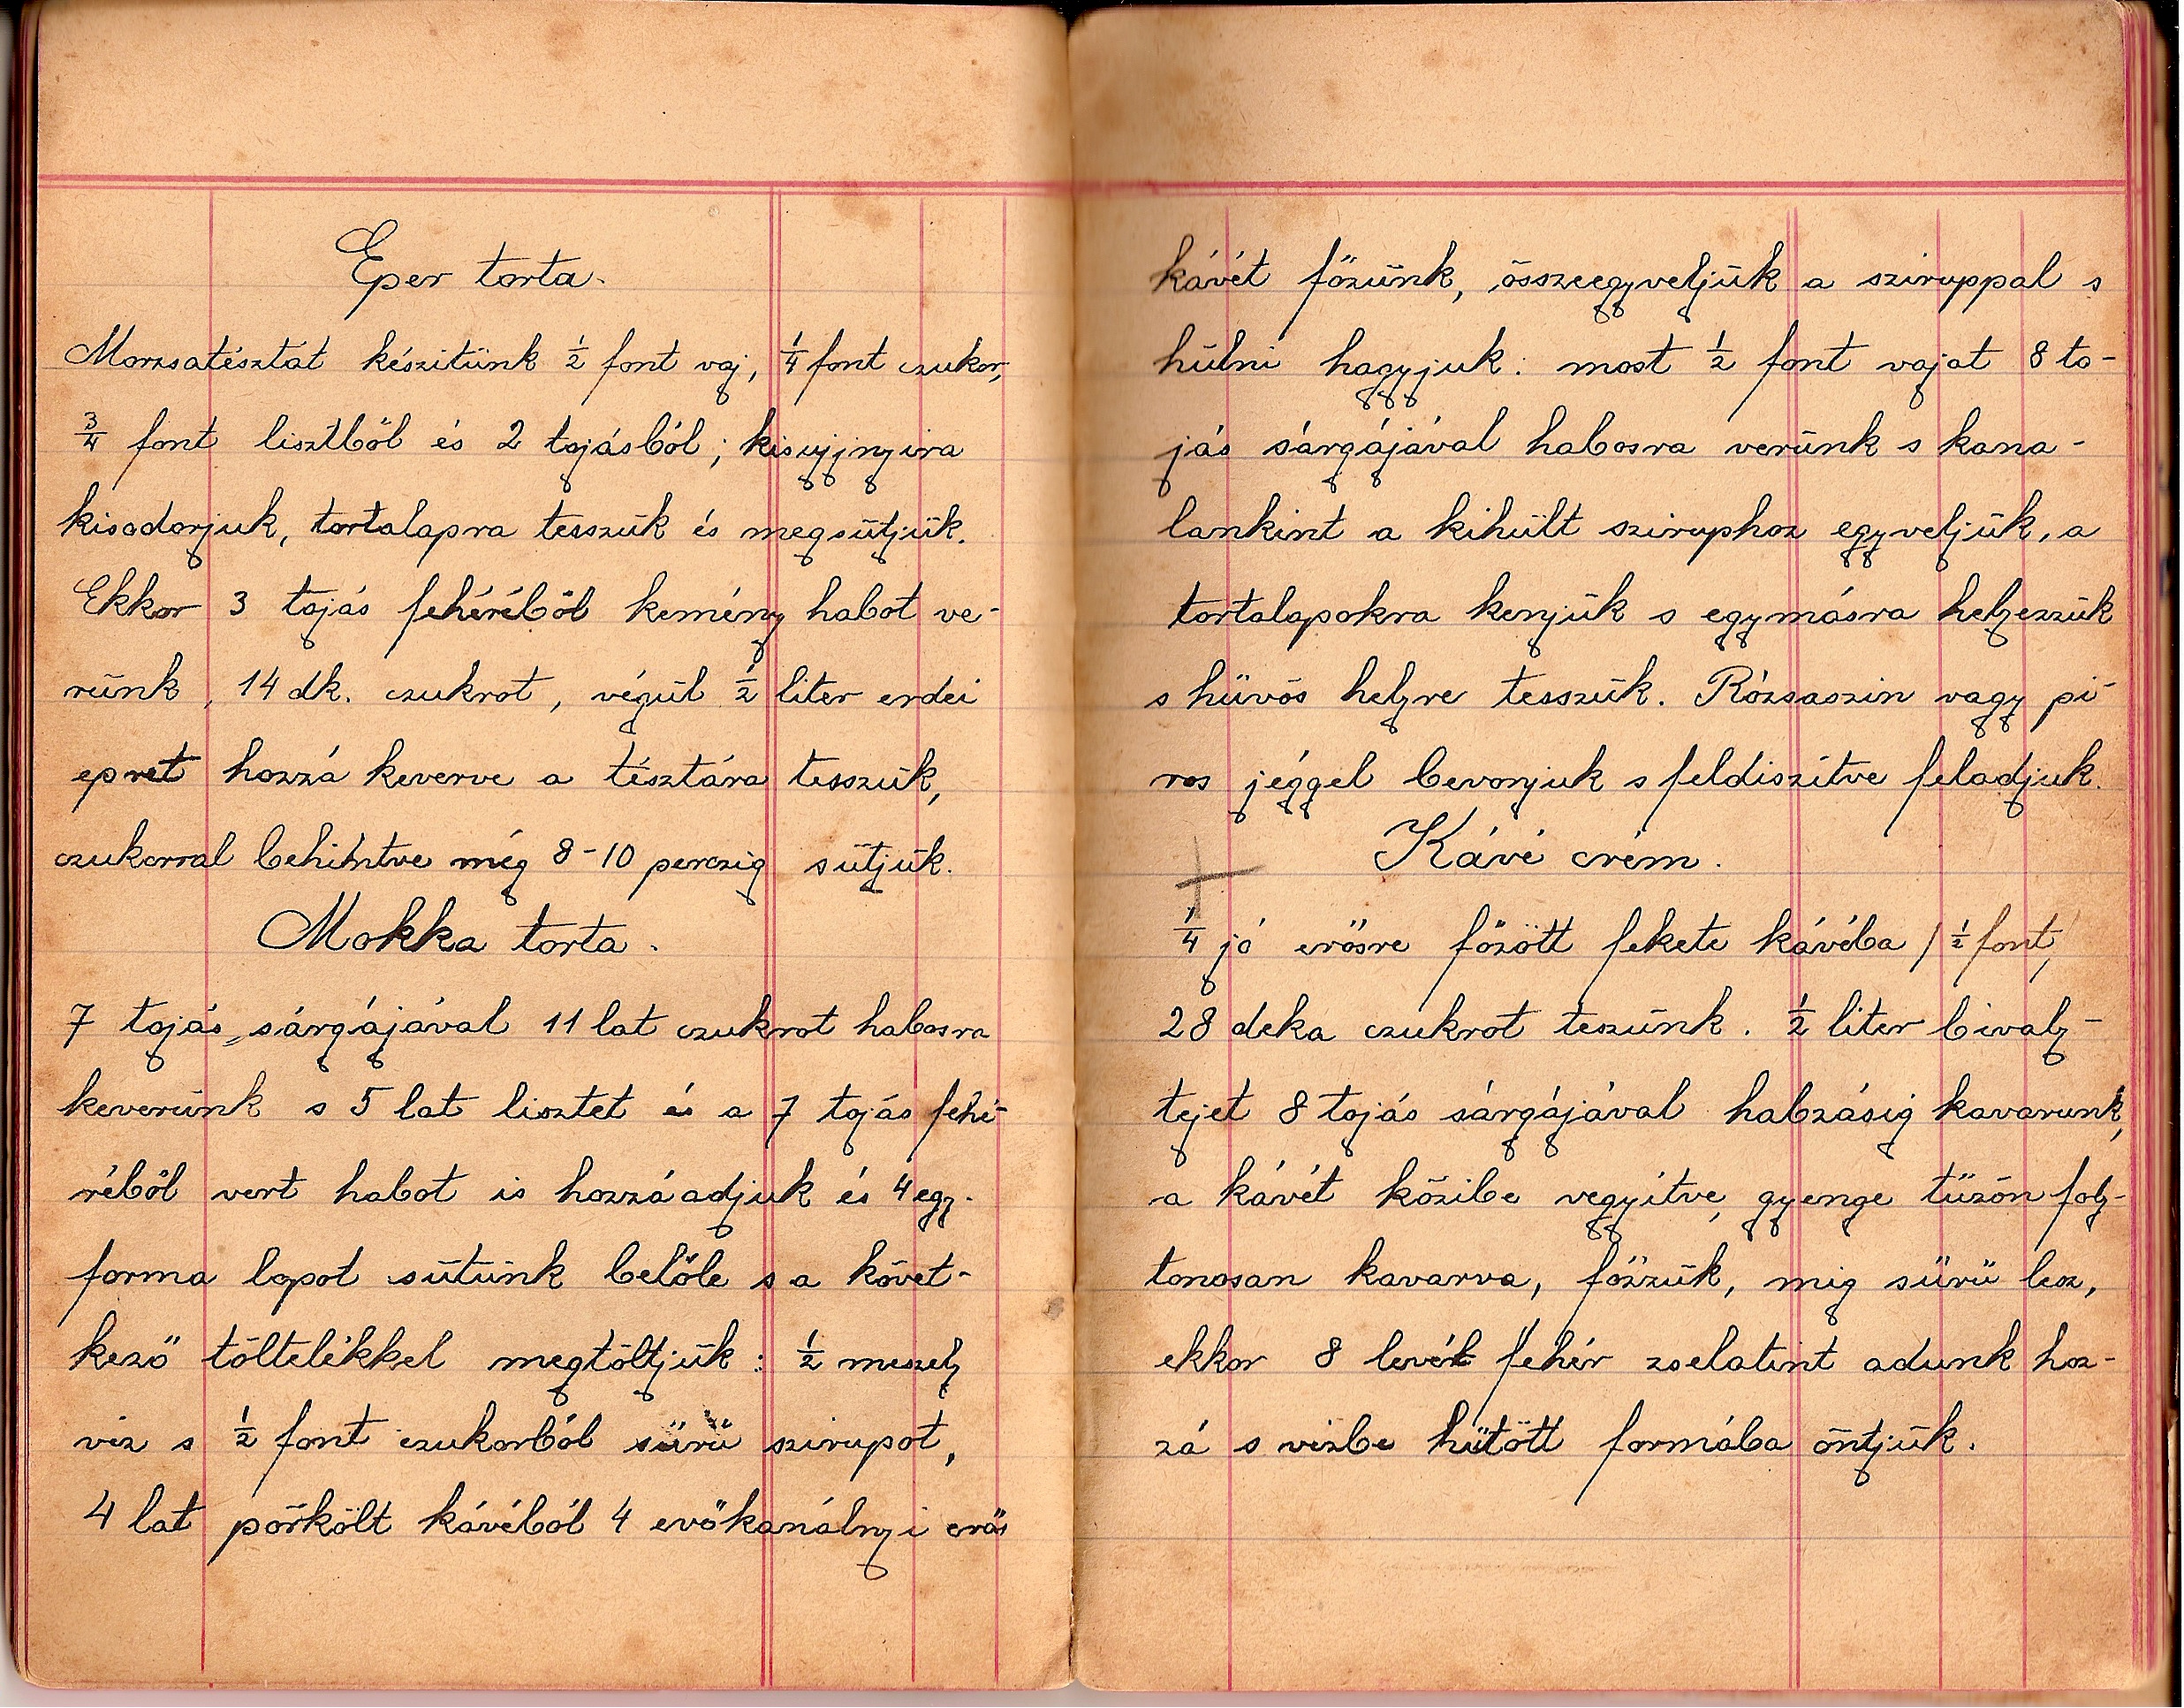 Eper torta.
Morzsatésztát készitünk ½ font vaj, ¼ font czukor,
¾ font lisztből és 2 tojásból; kisujjnyira
kisodorjuk, tortalapra tesszük és megsütjük.
Ekkor 3 tojás fehéréből kemény habot ve-
rünk, 14 dk. czukrot, végül ½ liter erdei
epret hozzá keverve a tésztára tesszük,
czukorral behintve még 8-10 perczig sütjük.
Mokka torta.
7 tojás sárgájával 11 lat czukrot habosra
keverünk s 5 lat lisztet és a 7 tojás fehé-
réből vert habot is hozzáadjuk és 4 egy-
forma lapot sütünk belőle s a követ-
kező töltelékkel megtöltjük: ½ meszely
viz s ½ font czukorból sürü szirupot,
4 lat pörkölt kávéból 4 evőkanálnyi erős
kávét főzünk, összeegyveljük a sziruppal s
hülni hagyjuk: most ½ font vajat 8 to-
jás sárgájával habosra verünk s kana-
lankint a kihült sziruphoz egyveljük, a
tortalapokra kenjük s egymásra helyezzük
s hüvös helyre tesszük. Rózsaszin vagy pi-
ros jéggel bevonjuk s feldiszitve feladjuk.
Kávé crém.
¼ jó erősre főzött fekete kávéba / ½ font /
28 deka czukrot teszünk. ½ liter bivaly-
tejet 8 tojás sárgájával habzásig kavarunk,
a kávét közibe vegyitve, gyenge tüzön foly-
tonosan kavarva, főzzük, mig sürü lesz,
ekkor 8 levél fehér zselatint adunk hoz-
zá s vizbe hütött formába öntjük.